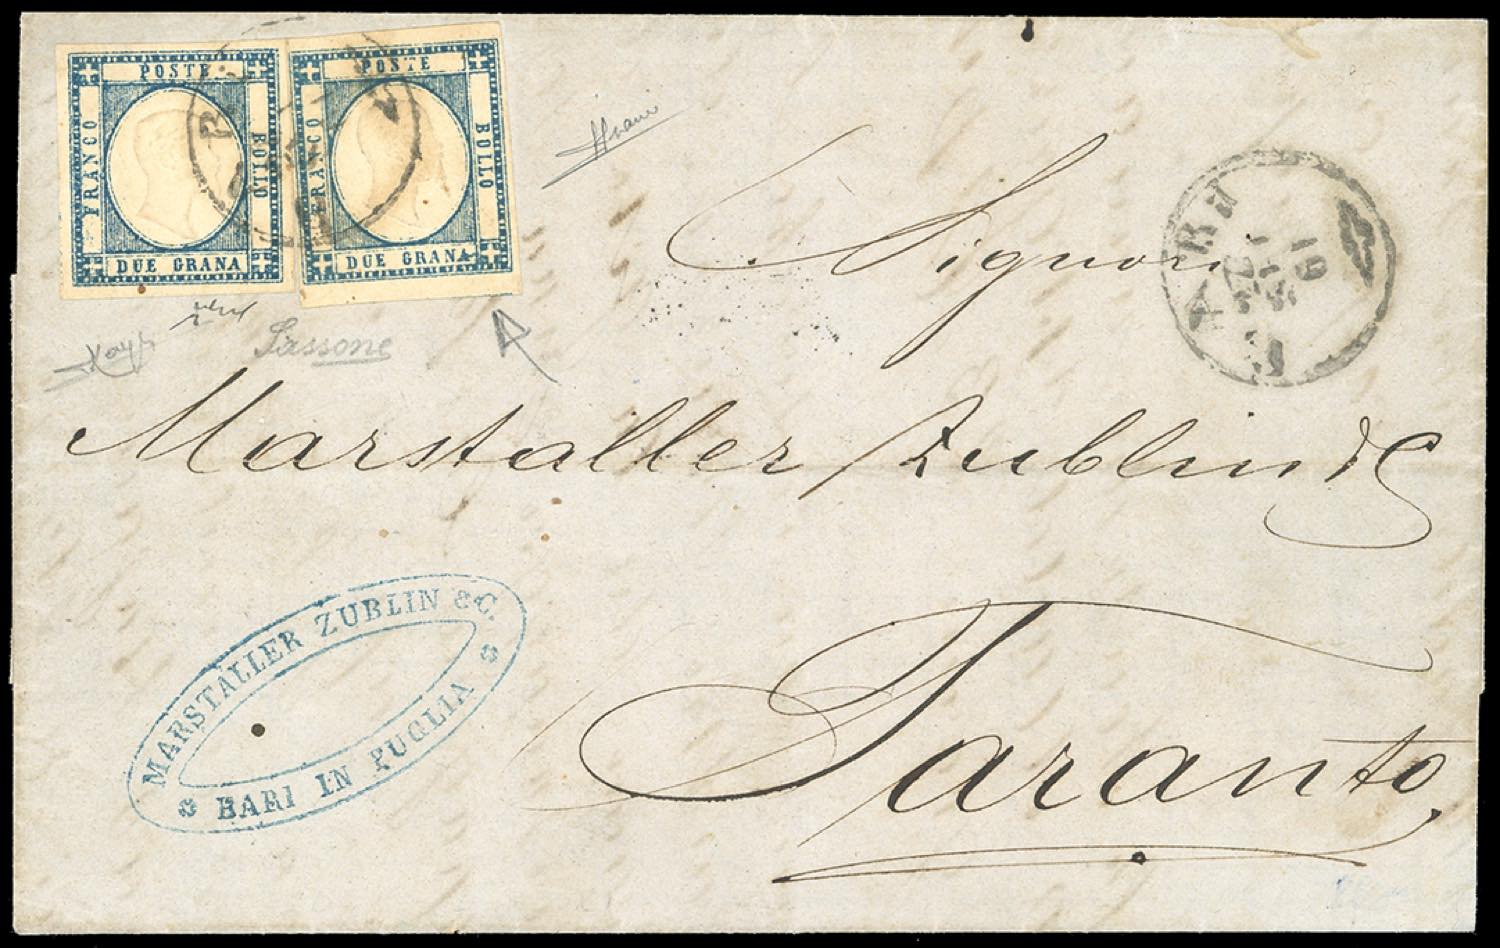 POSTE
FRANCO
BOLLO
DUE GRANA
POSTE
FRANCO
BOLLO
DUE GRANA
Sassone
BARI
19
Signori
Marstaller Zublin & C
Taranto
MARSTALLER ZUBLIN & C.
BARI IN PUGLIA